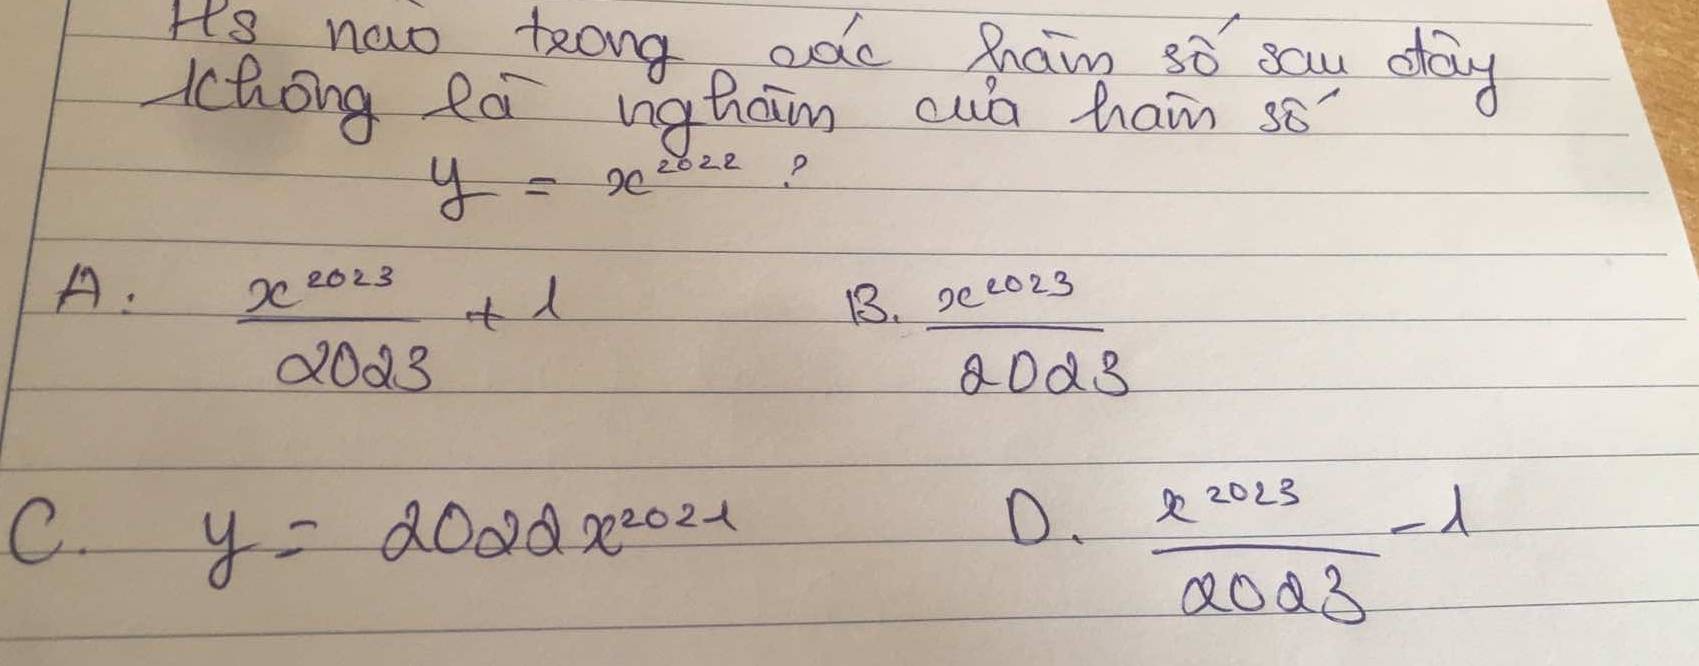 Hs nào trong các hàm số sau đây
không là nghàm của hàm số
y = x^2022 ?
A. x^2023/2023 + 1 B. x^2023/2023
C. y = 2022x^2021 D. x^2023/2023 - 1